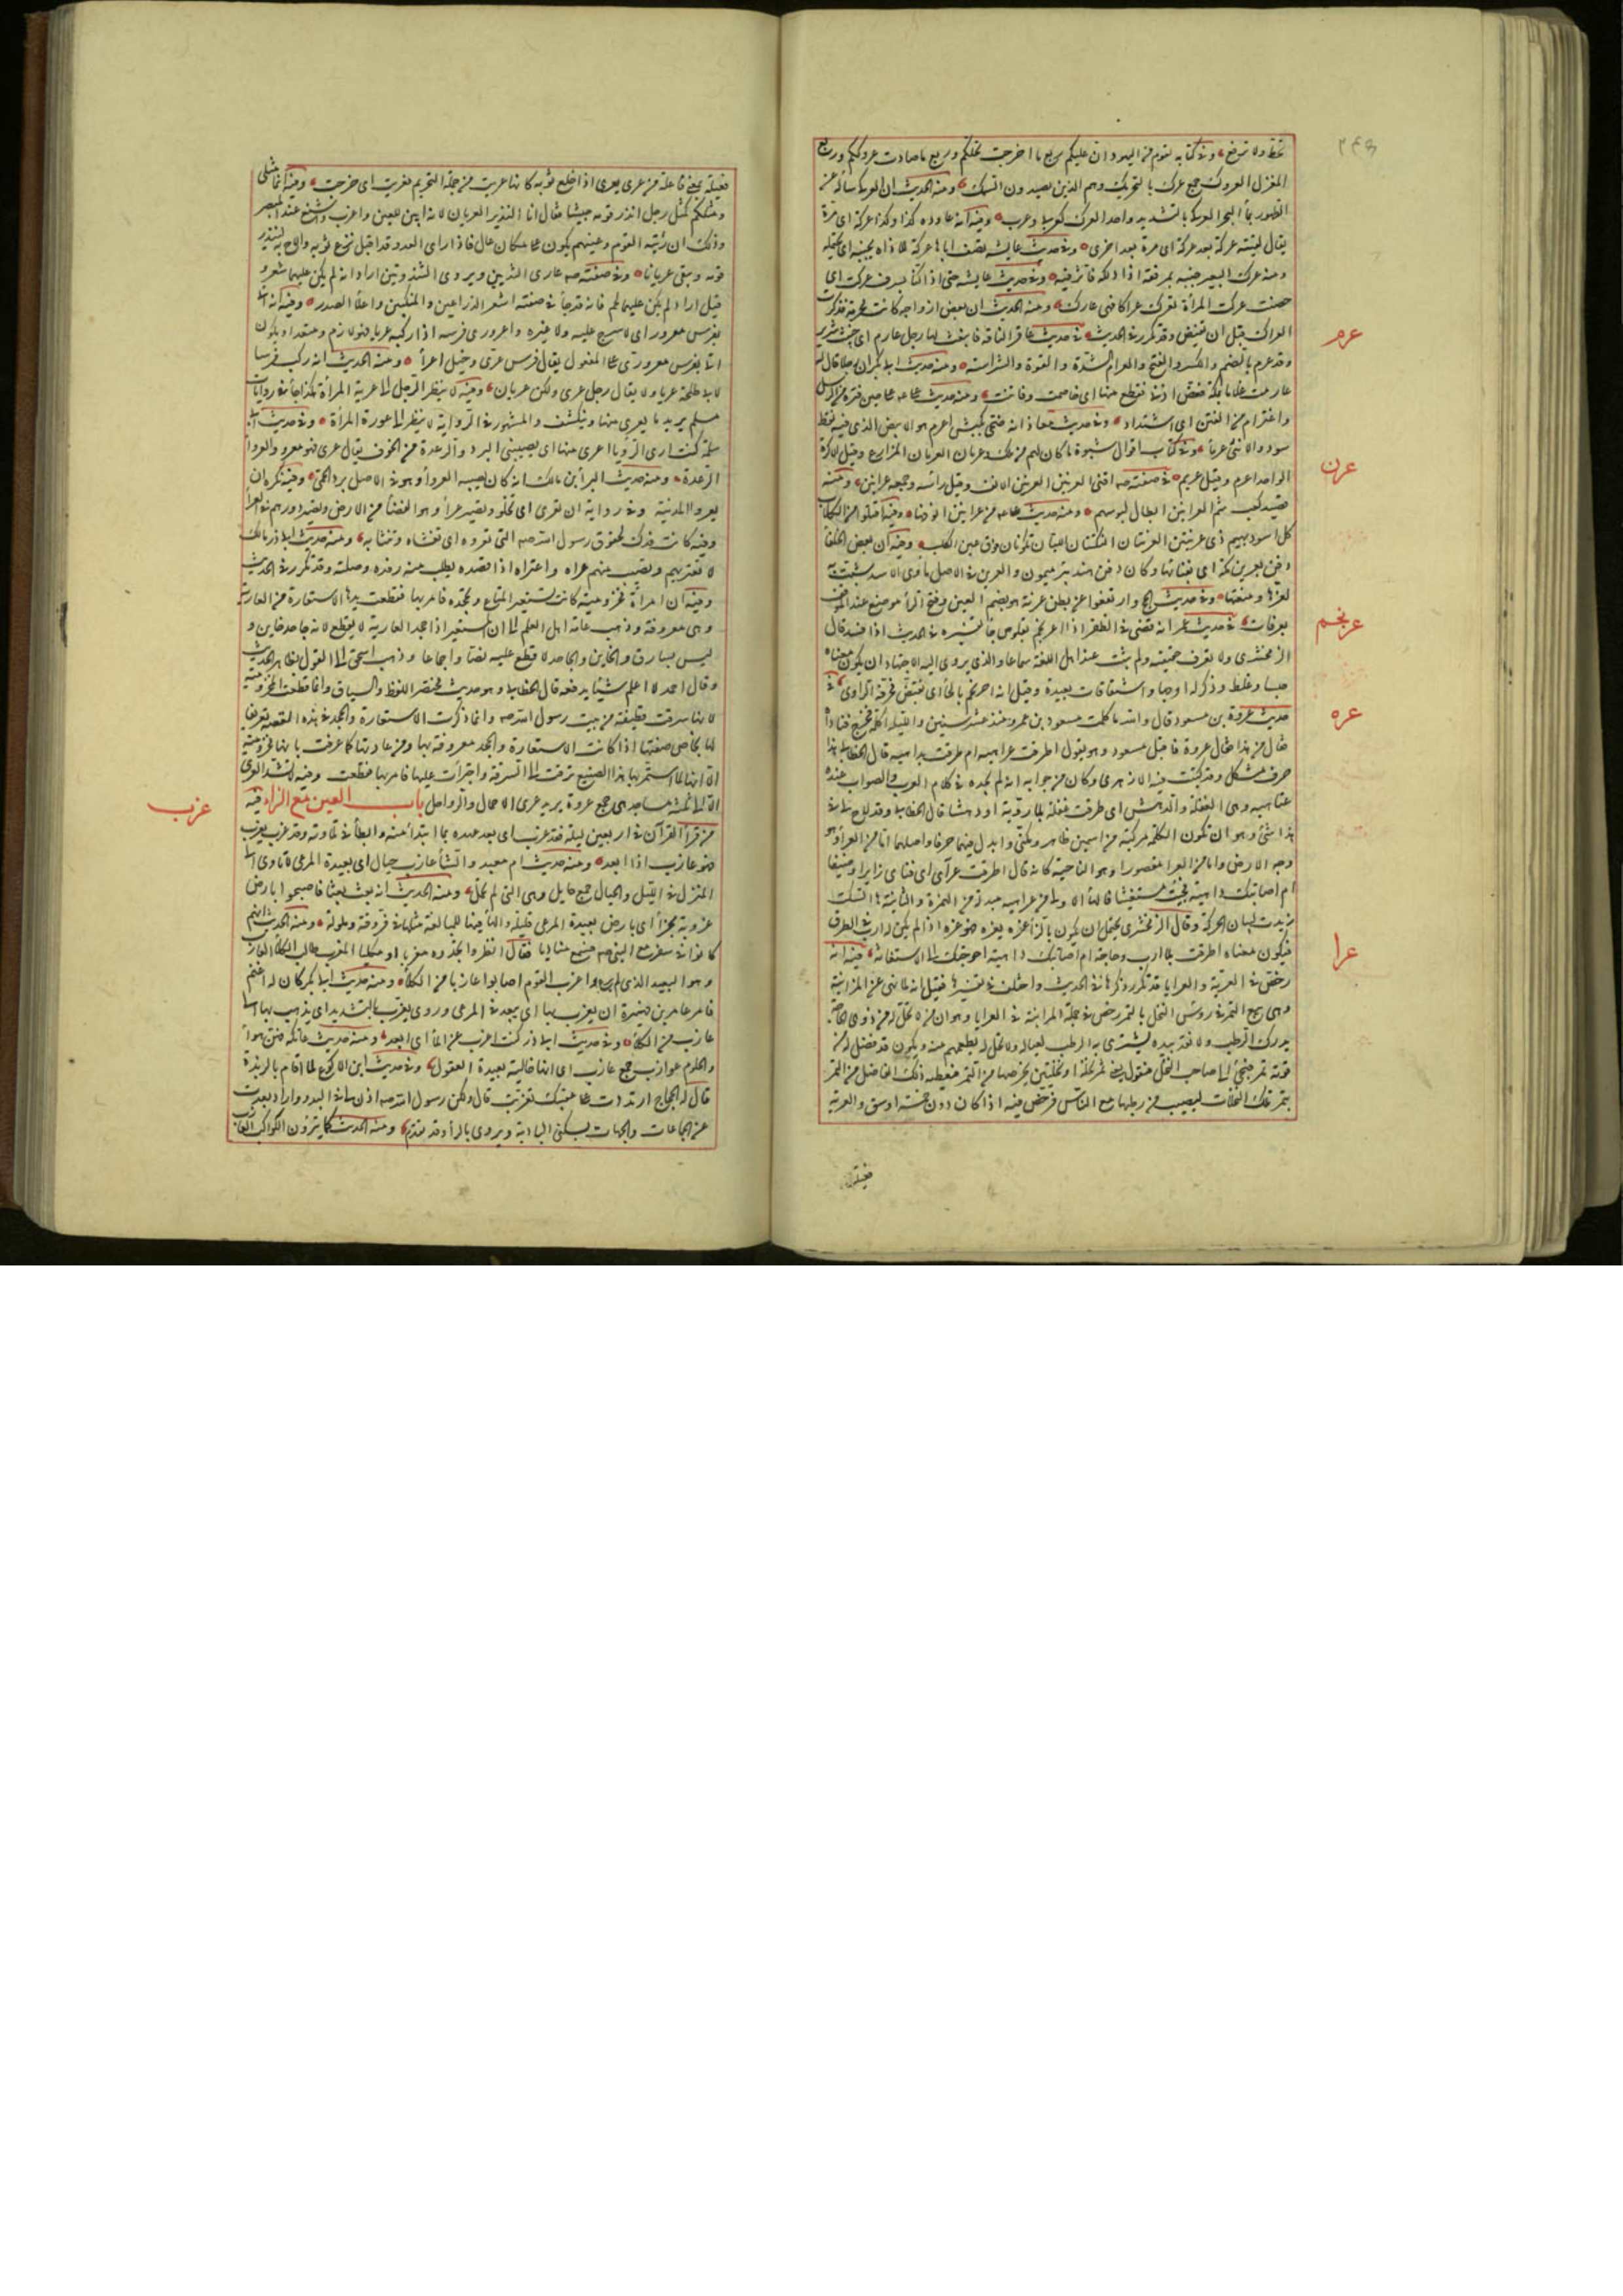 تخط ولا ترفع وفي كتابه لقوم من اليهود ان عليكم ربع ما اخرجت نخلكم وربع ما صادت عروككم وربع
المغزل العروك جمع عرك بالتحريك وهم الذين يصيدون السمك ومنه الحديث ان العركي سأله عن
الطهور بماء البحر العركي بالتشديد واحد العرك كعربي وعرب وفيه انه عاوده كذا وكذا عركة اى مرة
يقال لقيته عركة بعد عركة اى مرة بعد اخرى وفي حديث عايشة تصف اباها عركة للاذاة بجنبه اى يحتمله
ومنه عرك البعير جنبه بمرفقه اذا دلكه فاثر فيه وفي حديث عايشة حتى اذا كنا بسرف عركت اى
حضت عركت المرأة تعرك عراكا فهى عارك ومنه الحديث ان بعض ازواجه كانت محرمة فذكرت
العراك قبل ان تفيض وقد تكرر في الحديث في حديث عاقر الناقة فانبعث لها رجل عارم اى خبيث شرير
عرم
وقد عرم بالضم والكسر والفتح والعرام الشدة والقوة والشراسة ومنه حديث ابى بكر ان رجلا قال له
عارمت غلاما بمكة فعض اذني فقطع منها اى خاصمت وفاتنت ومنه حديث على على حين فترة من الرسل
واعترام من الفتن اى اشتداد وفي حديث معاذ انه ضحى بكبش اعرم هو الابيض الذى فيه نقط
سود والانثى عرماء وفي كتاب اقوال شبوة ما كان لهم من ملك وعرمان العرمان المزارع وقيل الاكرة
الواحد اعرم وقيل عريم في صفته صه اقنى العرنين العرنين الانف وقيل رأسه وجمعه عرانين ومنه
عرن
قصيد كعب شم العرانين ابطال لبوسهم ومنه حديث على من عرانين انوفها وفيه اقتلوا من الكلاب
كل اسود بهيم ذى عرنتين العرنتان النكتتان اللتان تكونان فوق عين الكلب وفيه ان بعض الخلفاء
دفن بعرين مكة اى بفنائها وكان دفن عند بئر ميمون والعرين في الاصل مأوى الاسد شبهت به
لعزها ومنعتها وفي حديث الحج وارتفعوا عن بطن عرنة هو بضم العين وفتح الراء موضع عند الموقف
بعرفات في حديث عمر انه قضى في الظفر اذا اعرنجم بقلوص جاء تفسيره في الحديث اذا فسد قال
عرنجم
الزمخشرى ولا تعرف حقيقته ولم يثبت عند اهل اللغة سماعا والذى يروى اليه الاجتهاد ان يكون معناه
جسا وغلظ وذكر له اوجها واشتقاقات بعيدة وقيل انه احرنجم بالحاء اى تقبض فحرفه الراوى في
حديث عروة بن مسعود قال والله ما كلمت مسعود بن عمرو منذ عشر سنين والليلة اكلمه فخرج فناداه
عره
فقال من هذا فقال عروة فاقبل مسعود وهو يقول اطرقت عراهيه ام طرقت بداهيه قال الخطابى هذا
حرف مشكل وقد كتبت فيه الى الازهرى وكان من جوابه انه لم يجده في كلام العرب والصواب عنده
عتاهيه وهى الغفلة والدهش اى طرقت غفلة بلا روية او دهشا قال الخطابى وقد لاح لى في
هذا شئ وهو ان تكون الكلمة مركبة من اسمين ظاهر ومكنى وابدل فيهما حرفا واصلهما اما من العراء وهو
وجه الارض واما من العرا مقصورا وهو الناحية كانه قال اطرقت عرائى اى فنائى زايرا وضيفا
ام اصابتك داهية فجئت مستغيثا فالهاء الاولى من عراهيه مبدلة من الهمزة والثانية هاء السكت
زيدت لبيان الحركة وقال الزمخشرى يحتمل ان يكون بالزاء عزه يعزه فهو عزه اذا لم يكن له ارب في الطرق
فيكون معناه اطرقت بلا ارب وحاجة ام اصابتك داهية احوجتك الى الاستغاثة فيه انه
عرا
رخص في العرية والعرايا قد تكرر ذكرها في الحديث واختلف في تفسيرها فقيل انه لما نهى عن المزابنة
وهى بيع الثمر في رؤس النخل بالتمر رخص في جملة المزابنة في العرايا وهو ان من لا نخل له من ذوى الحاجة
يدرك الرطب ولا نقد بيده يشترى به الرطب لعياله ولا نخل له يطعمهم منه ويكون قد فضل له من
قوته تمر فيجئ الى صاحب النخل فيقول له بعنى ثمر نخلة او نخلتين بخرصها من التمر فيعطيه ذلك الفاضل من التمر
بثمر تلك النخلات ليصيب من رطبها مع الناس فرخص فيه اذا كان دون خمسة اوسق والعرية
فعيلة
فعيلة بمعنى فاعلة من عرى يعرى اذا خلع ثوبه كانها عريت من جملة التحريم فعريت اى خرجت وفيه انما مثلى
ومثلكم كمثل رجل انذر قومه جيشا فقال انا النذير العريان لانه ابين للعين واغرب واشنع عند المبصر
وذلك ان ربيئة القوم وعينهم يكون على مكان عال فاذا راى العدو قد اقبل نزع ثوبه والاح به لينذر
قومه ويبقى عريانا وفي صفته صه عارى الثديين ويروى الثندوتين اراد انه لم يكن عليهما شعر و
قيل اراد لم يكن عليهما لحم فانه قد جاء في صفته اشعر الذراعين والمنكبين واعلى الصدر وفيه انه اتى
بفرس معرور اى لا سرج عليه ولا غيره واعرورى فرسه اذا ركبه عريا فهو لازم ومتعد او يكون
اتى بفرس معرورى على المفعول يقال فرس عرى وخيل اعراء ومنه الحديث انه ركب فرسا
لابى طلحة عريا ولا يقال رجل عرى ولكن عريان وفيه لا ينظر الرجل الى عرية المرأة هكذا جاء في روايات
مسلم يريد ما يعرى منها وينكشف والمشهور في الرواية لا ينظر الى عورة المرأة وفي حديث ابى
سلمة كنت ارى الرؤيا اعرى منها اى يصيبنى البرد والرعدة من الخوف يقال عرى فهو معرو والعرواء
الرعدة ومنه حديث البراء بن مالك انه كان يصيبه العرواء وهو في الاصل برد الحمى وفيه فكره ان
يعروا المدينة وفي رواية ان تعرى اى تخلو وتصير عراء وهو الفضاء من الارض وتصير دورهم في العراء
وفيه كانت فدك لحقوق رسول الله صه التى تعروه اى تغشاه وتنتابه ومنه حديث ابى ذر مالك
لا تعتريهم وتصيب منهم عراه واعتراه اذا قصده يطلب منه رفده وصلته وقد تكرر في الحديث
وفيه ان امرأة مخزومية كانت تستعير المتاع وتجحده فامر بها فقطعت يدها الاستعارة من العارية
وهى معروفة وذهب عامة اهل العلم الى ان المستعير اذا جحد العارية لا يقطع لانه جاحد خاين و
ليس بسارق والخاين والجاحد لا قطع عليه نصا واجماعا وذهب اسحق الى القول بظاهر الحديث
وقال احمد لا اعلم شيئا يدفعه قال الخطابى وهو حديث مختصر اللفظ والسياق وانما قطعت المخزومية
لانها سرقت قطيفة من بيت رسول الله صه وانما ذكرت الاستعارة والجحد في هذه القصة تعريفا
لها بخاص صفتها اذا كانت الاستعارة والجحد معروفة بها ومن عادتها كما عرفت بانها مخزومية
الا انها لما استمر بها هذا الصنيع ترقت الى السرقة واجترأت عليها فامر بها فقطعت وفيه لا تشد العرى
الا الى ثلثة مساجد هى جمع عروة يريد عرى الاحمال والرواحل باب العين مع الزاء فيه
عزب
من قرأ القرآن في اربعين ليلة فقد عزب اى بعد عهده بما ابتدأ منه وابطأ في تلاوته وقد عزب يعزب
فهو عازب اذا ابعد ومنه حديث ام معبد والشاء عازب حيال اى بعيدة المرعى لا تأوى الى
المنزل في الليل والحيال جمع حايل وهى التى لم تحمل ومنه الحديث انه بعث بعثا فاصبحوا بارض
عزوبة بجراء اى بارض بعيدة المرعى قليلته والهاء فيها للمبالغة مثلها في فروقة وملولة ومنه الحديث انهم
كانوا في سفر مع النبى صه فسمع مناديا فقال انظروا تجدوه معزبا او مكليا المعزب طالب الكلاء العازب
وهو البعيد الذى لم يرع واعزب القوم اصابوا عازبا من الكلاء ومنه حديث ابى بكر كان له غنم
فامر عامر بن فهيرة ان يعزب بها اى يبعد في المرعى وروى يعزب بالتشديد اى يذهب بها الى
عازب من الكلاء وفي حديث ابى ذر كنت اعزب عن الماء اى ابعد ومنه حديث عاتكة فهن هواء
والحلوم عوازب جمع عازب اى انها خالية بعيدة العقول وفي حديث ابن الاكوع لما اقام بالربذة
قال له الحجاج ارتددت على عقبيك تعزبت قال لا ولكن رسول الله صه اذن لى في البدو واراد بعدت
عن الجماعات والجمعات بسكنى البادية ويروى بالراء وقد تقدم ومنه الحديث كما يتراءون الكوكب العازب